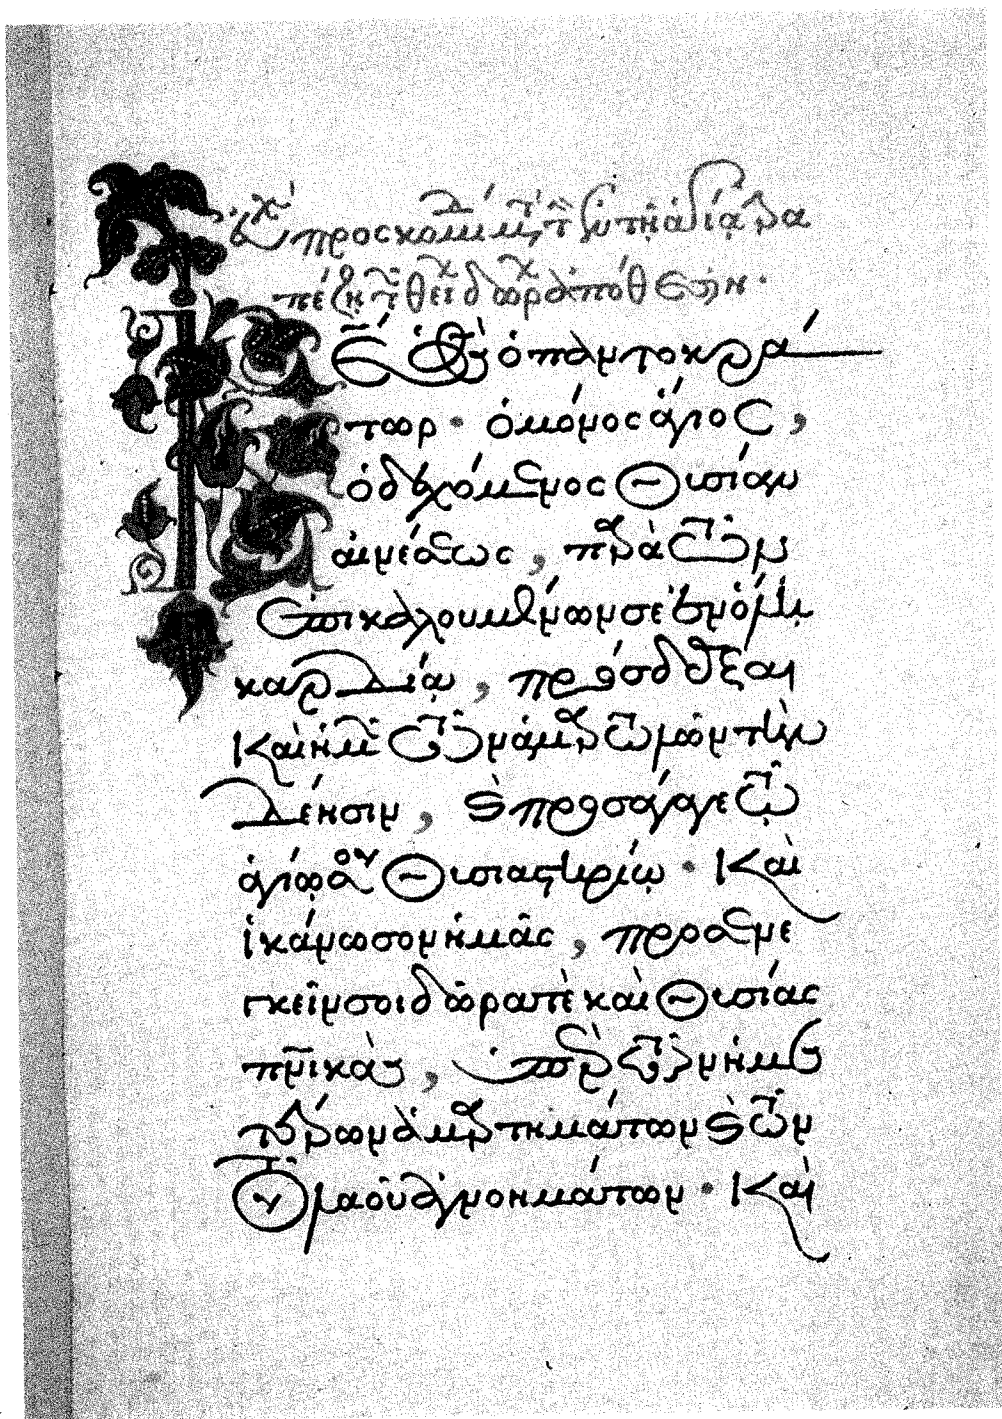 Εὐχὴ προσκομιδῆς μετὰ τὴν ἐν τῇ ἁγίᾳ τρα
πέζῃ τῶν θείων δώρων ἀπόθεσιν.
Κύριε ὁ Θεὸς ὁ παντοκρά
τωρ· ὁ μόνος ἅγιος,
ὁ δεχόμενος θυσίαν
αἰνέσεως, παρὰ τῶν
ἐπικαλουμένων σε ἐν ὅλῃ
καρδίᾳ, πρόσδεξαι
καὶ ἡμῶν τῶν ἁμαρτωλῶν τὴν
δέησιν, καὶ προσάγαγε τῷ
ἁγίῳ σου θυσιαστηρίῳ· καὶ
ἱκάνωσον ἡμᾶς, προσενε
γκεῖν σοι δῶρα τὲ καὶ θυσίας
πνευματικὰς, ὑπὲρ τῶν ἡμε
τέρων ἁμαρτημάτων καὶ τῶν
τοῦ λαοῦ ἀγνοημάτων· καὶ